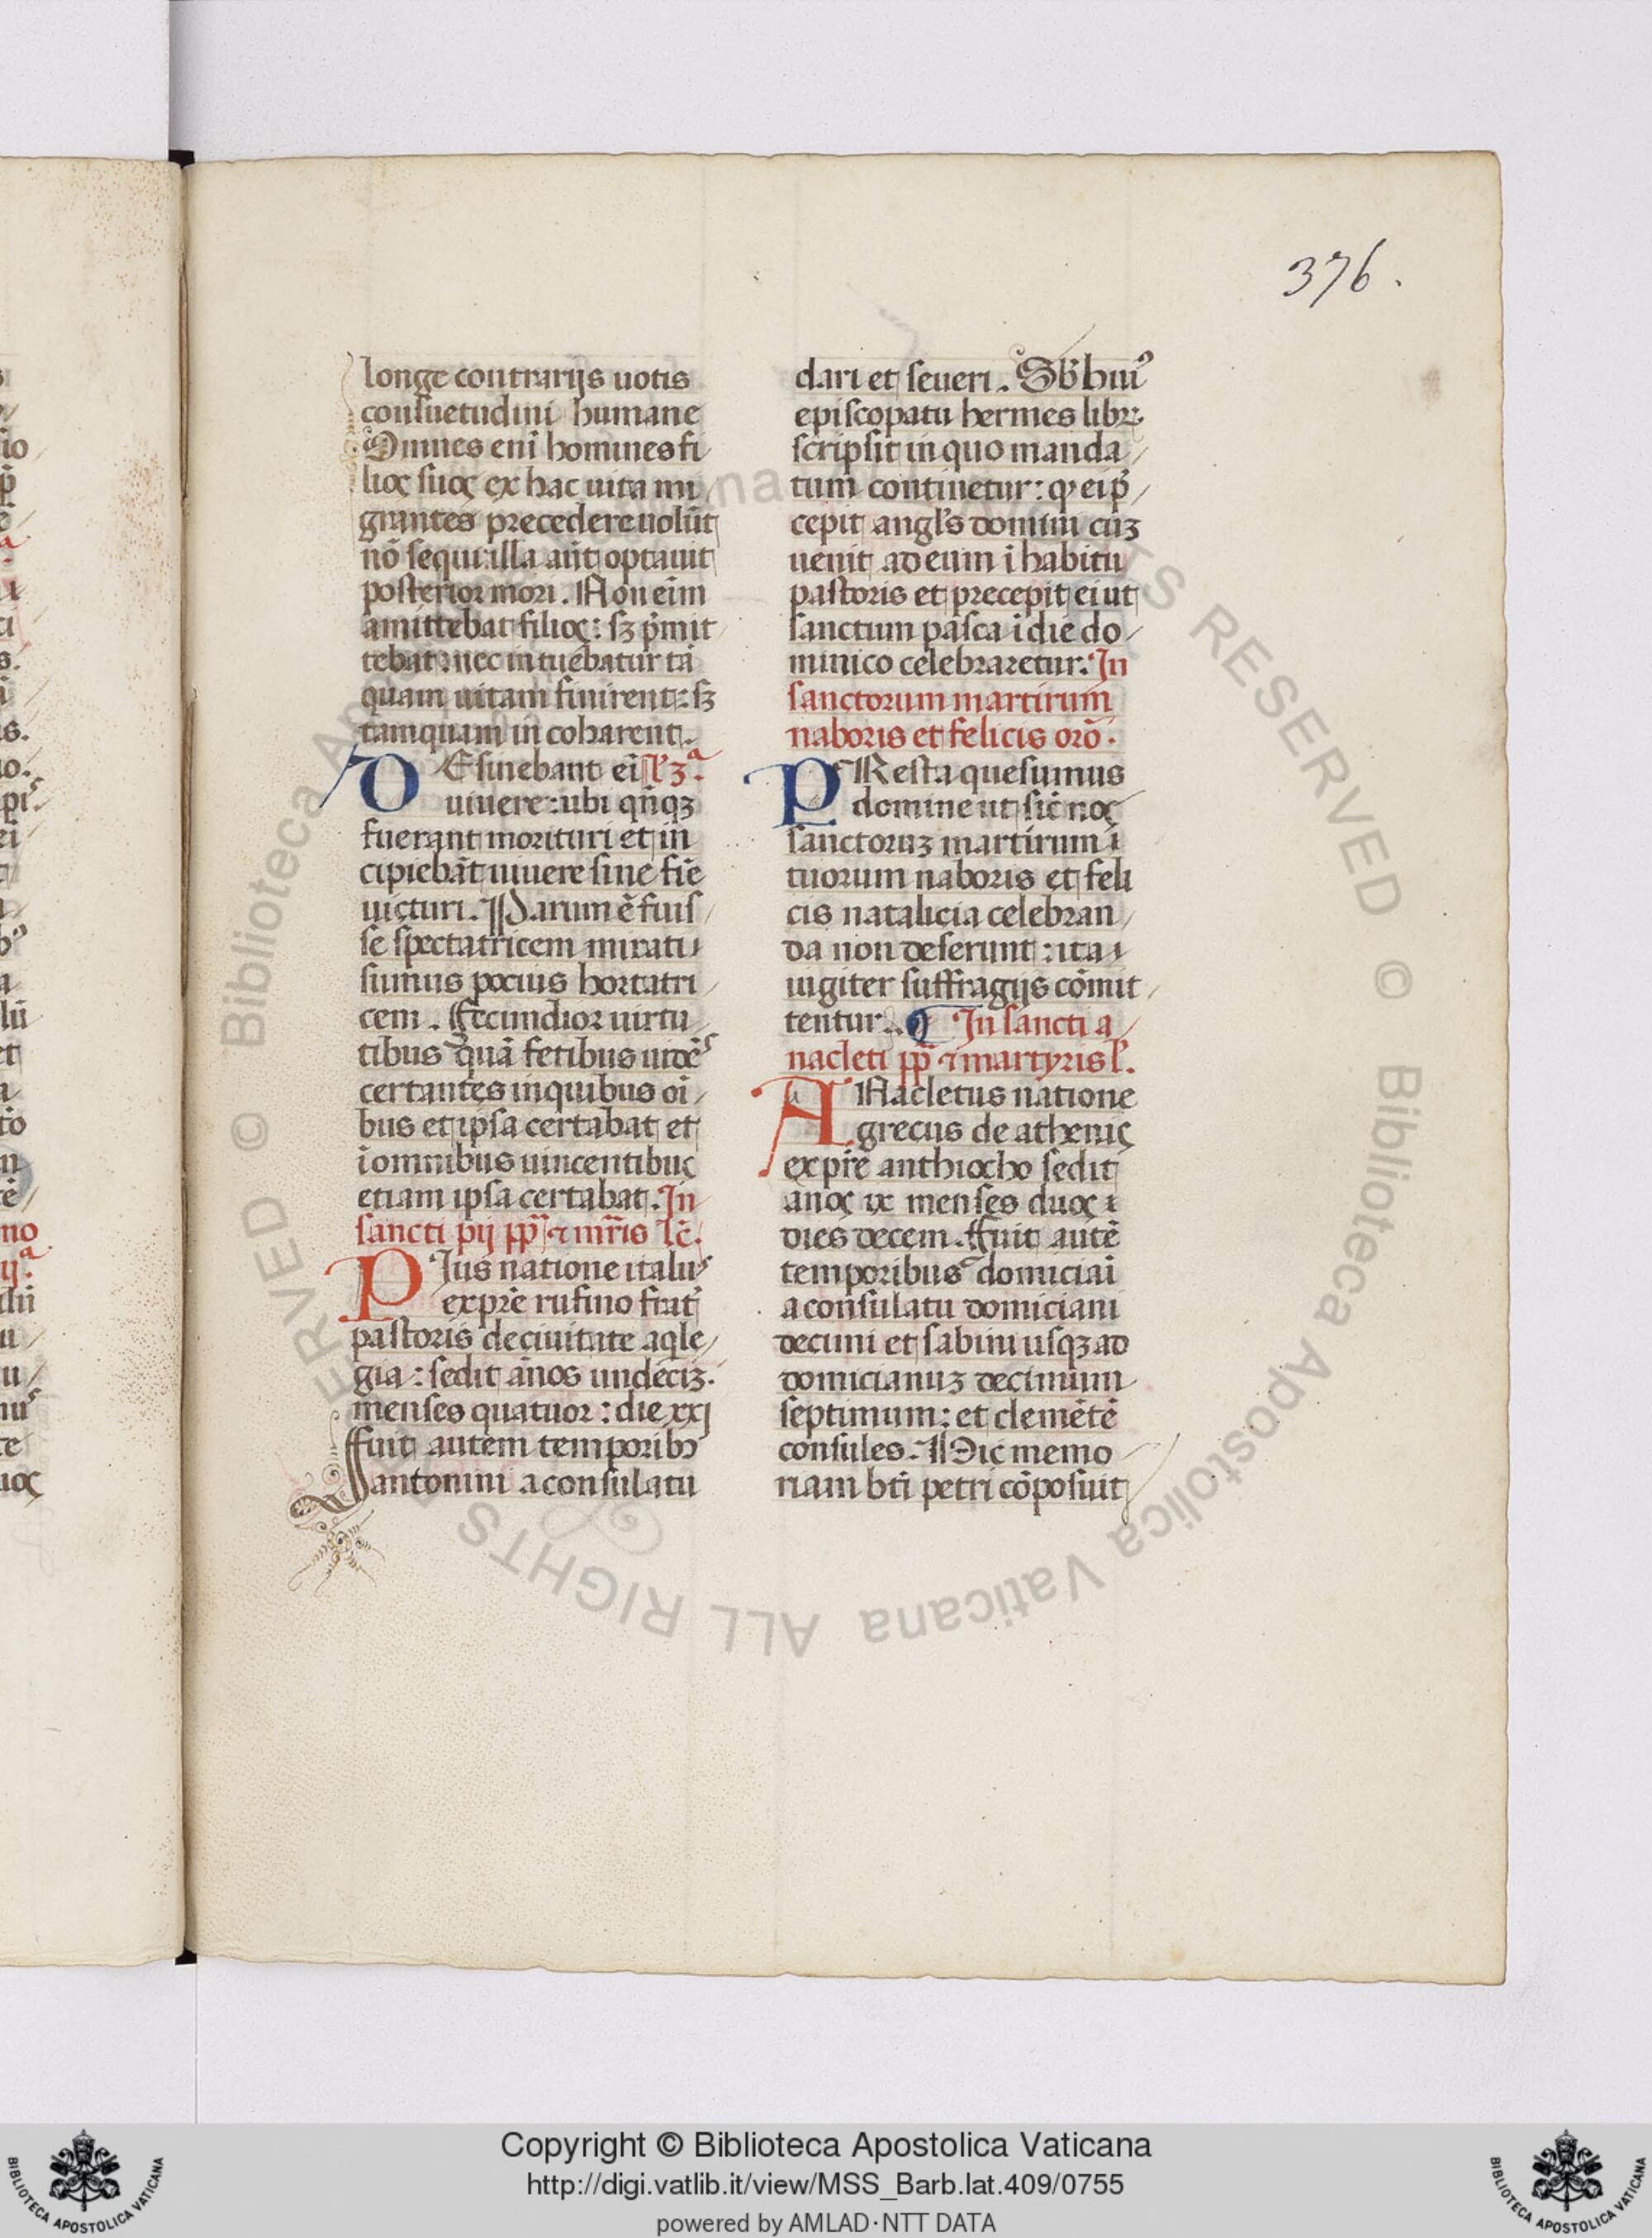 376.
longe contrarijs uotis
consuetudini humane
Omnes eni᷒ homines fi
lios suos ex hac uita mi
grantes precedere uolūt
nō sequi: illa aūt optauit
posterior mori. Non enim
amittebat filios: sꝫ p̄mit
tebat: nec intuebatur tā
quam uitam finirent: sꝫ
tamquam incoharent.
DEsinebant ei᷒ l'3ª.
uiuere: ubi qn̄qꝫ
fuerant morituri et in
cipiebāt uiuere sine fine
uicturi. Parum ē fuis
se spectatricem mirati
sumus pocius hortatri
cem. Fecundior uirtu
tibus quā fetibus uidēs
certantes in quibus oi᷒
bus et ipsa certabat et
i᷒ omnibus uincentibus
etiam ipsa certabat. In
sancti pij pp̄ ⁊ mr̄is lc̄.
PIus natione italus
ex pr̄e rufino frat᷒
pastoris de ciuitate aqle
gia: sedit annos undeciꝫ.
menses quatuor: die xxj
ffuit autem temporibꝫ
antonini a consulatu
dari et seueri. Sb̄ huiꝰ
episcopatu hermes libꝝ
scripsit in quo manda
tum continetur: qꝫ ei p̄
cepit angl's domini cuꝫ
uenit ad eum i᷒ habitu
pastoris et precepit ei ut
sanctum pasca i᷒ die do
minico celebraretur. In
sanctorum martirum
naboris et felicis orō.
PResta quesumus
domine ut sic᷒ nos
sanctoruꝫ martirum
tuorum naboris et feli
cis natalicia celebran
da non deserunt: ita i
uigiter suffragijs cōmit
tentur. In sancti a
nacleti pp̄ ⁊ martyris l'.
ANacletus natione
grecus de athenis
ex pr̄e anthiocho sedit
anos ix menses duos ⁊
dies decem. ffuit autē
temporibus domiciai᷒
a consulatu domiciani
decimi et sabini usqꝫ ad
domicianuꝫ decimum
septimum: et clemētē
consules. Hic memo
riam bt̄i petri cōposuit
© Biblioteca Apostolica Vaticana ALL RIGHTS RESERVED © Biblioteca Apostolica Vaticana ALL RIGHTS RESERVED
Copyright © Biblioteca Apostolica Vaticana
http://digi.vatlib.it/view/MSS_Barb.lat.409/0755
powered by AMLAD·NTT DATA
BIBLIOTECA APOSTOLICA VATICANA
BIBLIOTECA APOSTOLICA VATICANA